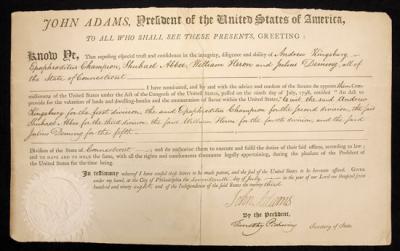 JOHN ADAMS, President of the United States of America,
TO ALL WHO SHALL SEE THESE PRESENTS, GREETING:
Know Ye, That reposing especial trust and confidence in the integrity, diligence and ability of Andrew Kingsbury
Epaphroditus Champion, Shubael Abbe, William Heron and Julius Deming, all of
the State of Connecticut
I have nominated, and by and with the advice and consent of the Senate do appoint them Com-
missioners of the United States under the Act of the Congress of the United States, passed on the ninth day of July, 1798, entitled "An Act to
provide for the valuation of lands and dwelling-houses and the enumeration of slaves within the United States,"
Andrew
Kingsbury for the first division, the said Epaphroditus Champion for the second division, the said
Shubael Abbe for the third division, the said William Heron for the fourth division, and the said
Julius Deming for the fifth
Division of the State of Connecticut and do authorise them to execute and fulfil the duties of their said offices, according to law;
and to HAVE AND TO HOLD the same, with all the rights and emoluments thereunto legally appertaining, during the pleasure of the President
of the United States for the time being.
In testimony whereof I have caused these letters to be made patent, and the seal of the United States to be hereunto affixed. Given
under my hand, at the City of Philadelphia the seventeenth day of July in the year of our Lord one thousand seven hundred
and ninety eight and of the Independence of the said States the twenty third
John Adams
By the President,
Timothy Pickering Secretary of State.